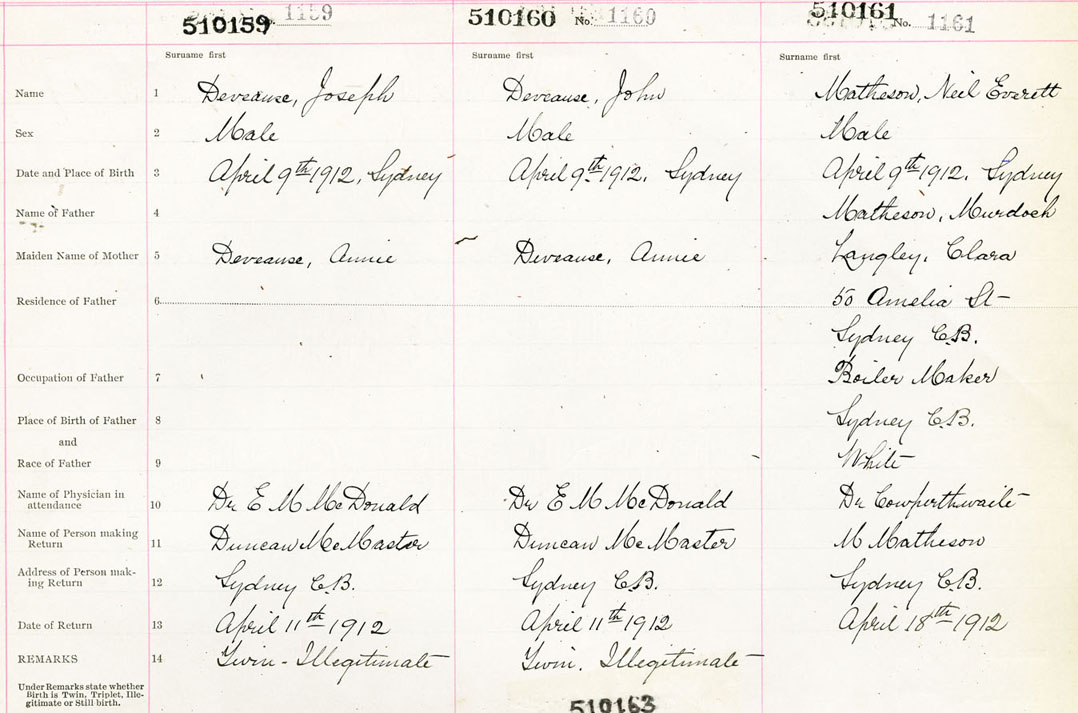 510159 1159 510160 No. 1160 510161 No. 1161
Surname first Surname first Surname first
Name 1 Deveause, Joseph Deveause, John Matheson, Neil Everett
Sex 2 Male Male Male
Date and Place of Birth 3 April 9th 1912, Sydney April 9th 1912, Sydney April 9th 1912, Sydney
Name of Father 4 Matheson, Murdoch
Maiden Name of Mother 5 Deveause, Annie Deveause, Annie Langley, Clara
Residence of Father 6 50 Amelia St
Sydney C.B.
Occupation of Father 7 Boiler Maker
Place of Birth of Father 8 Sydney C.B.
and
Race of Father 9 White
Name of Physician in
attendance 10 Dr E M McDonald Dr E M McDonald Dr Cowperthwaite
Name of Person making
Return 11 Duncan McMaster Duncan McMaster M Matheson
Address of Person mak-
ing Return 12 Sydney C.B. Sydney C.B. Sydney C.B.
Date of Return 13 April 11th 1912 April 11th 1912 April 18th 1912
REMARKS 14 Twin - Illegitimate Twin. Illegitimate
Under Remarks state whether
Birth is Twin, Triplet, Ille-
gitimate or Still birth.
510163